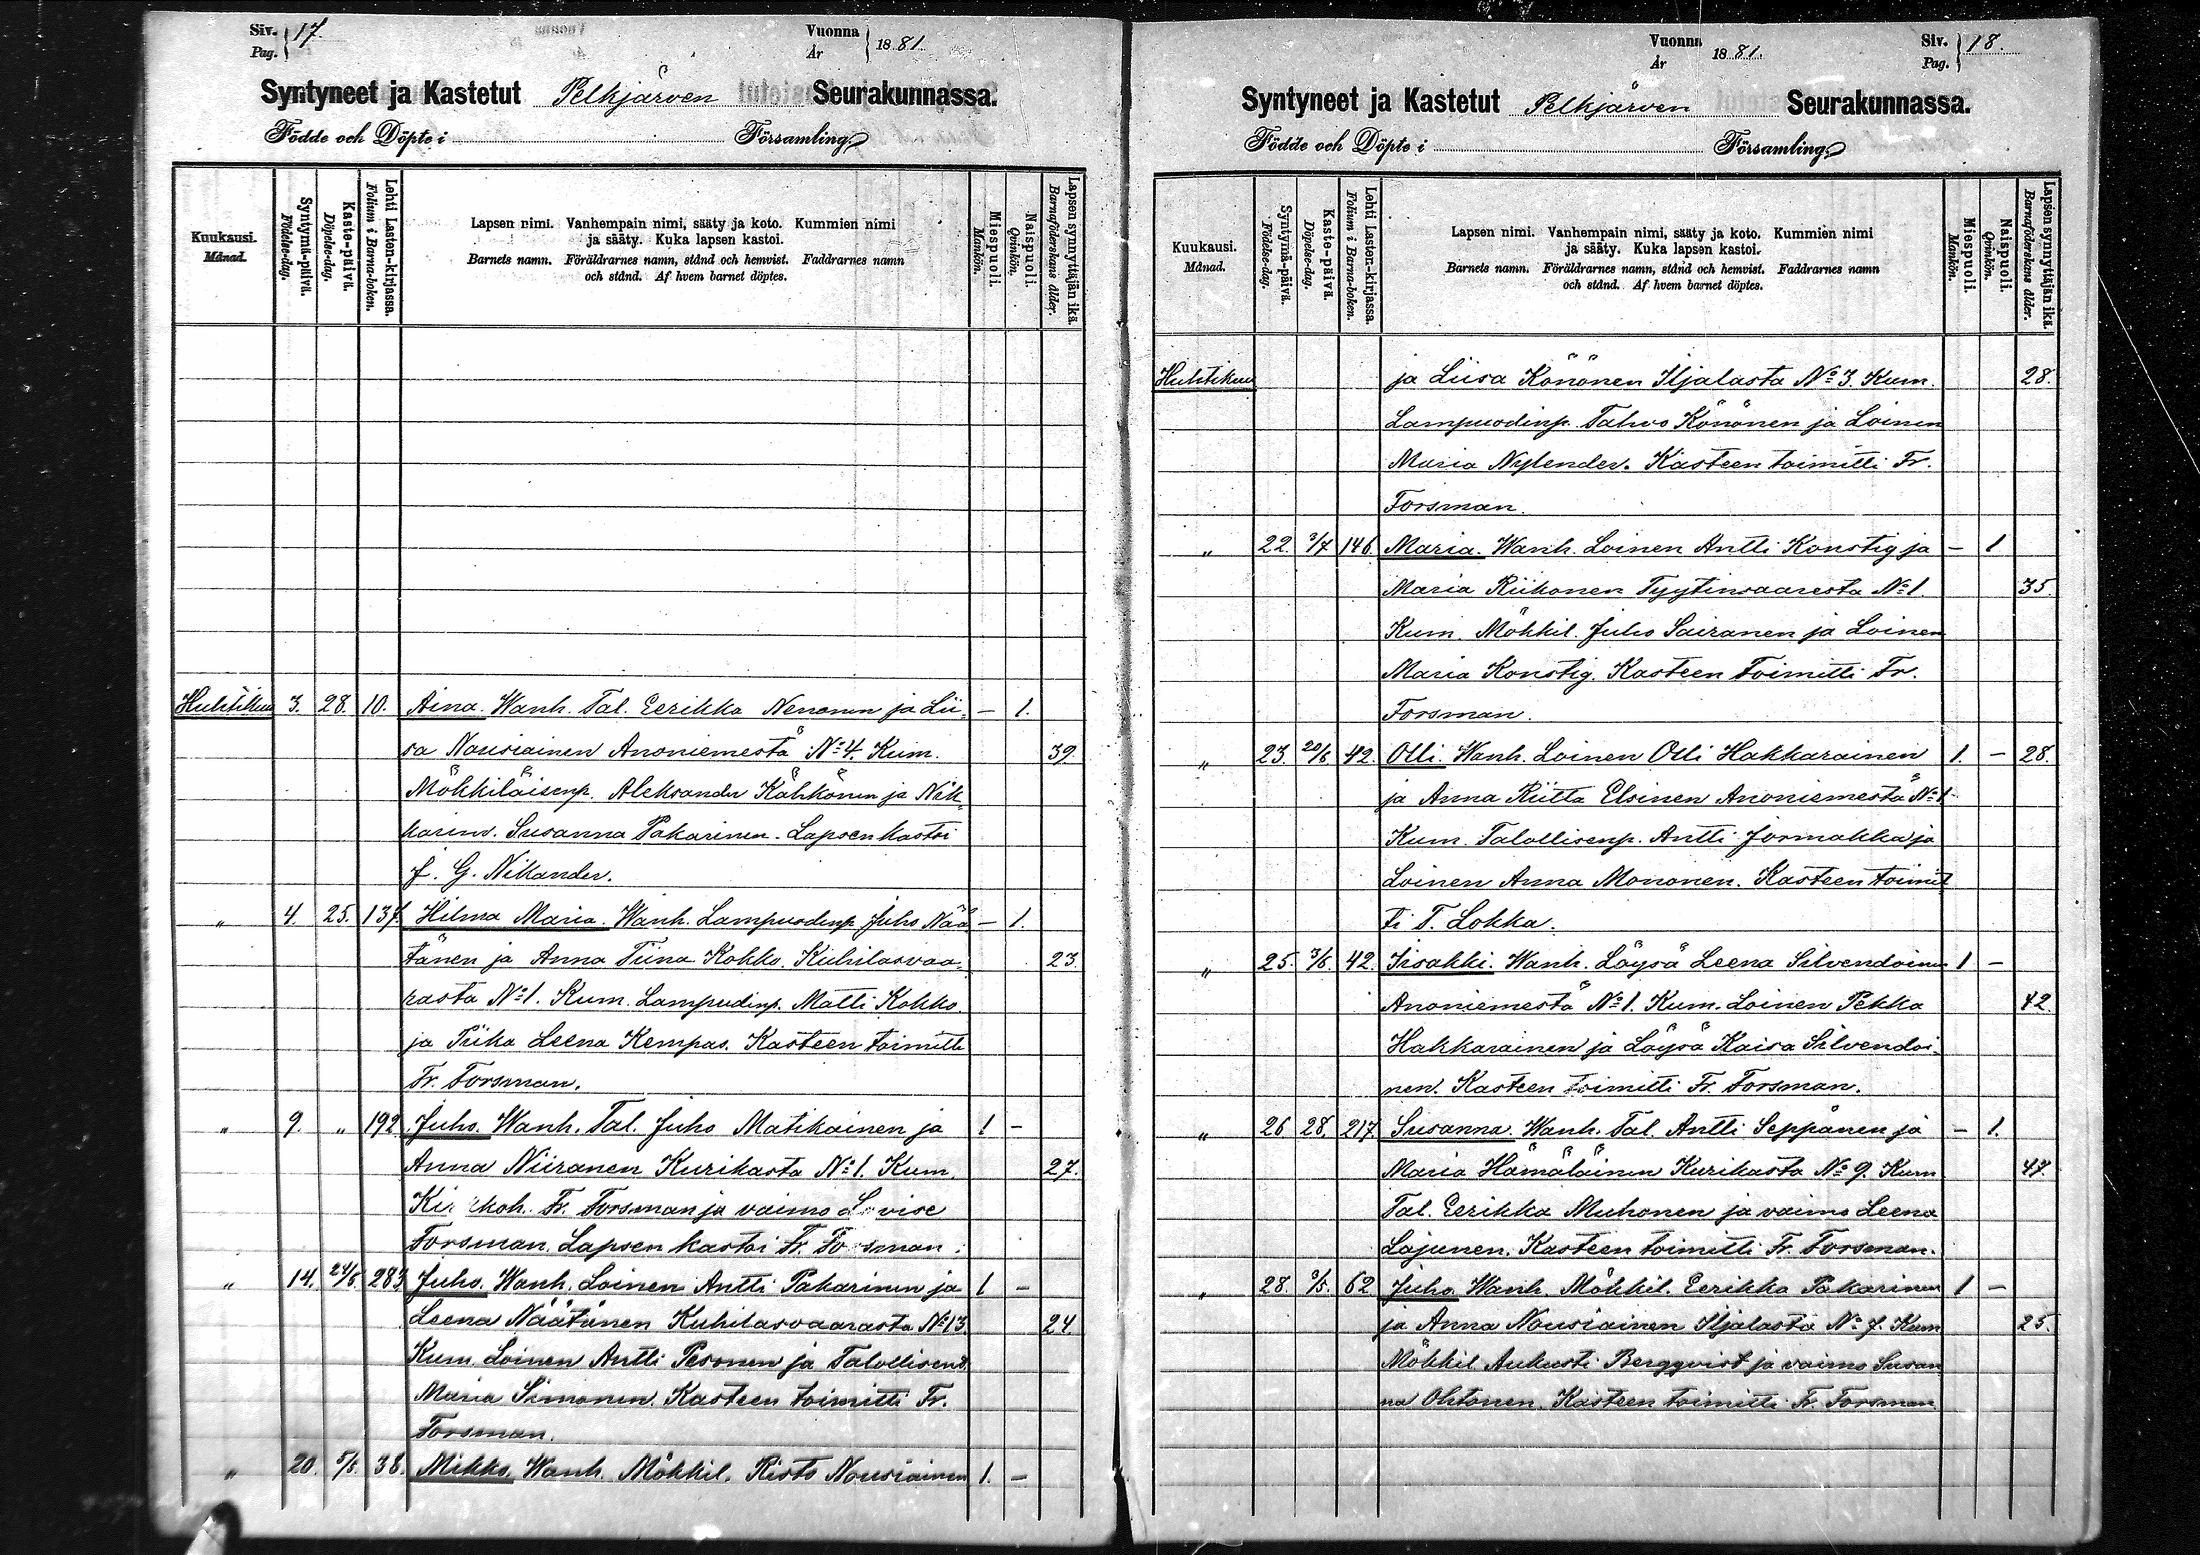 Siv. 17.
Pag.
Vuonna 1881.
År
Syntyneet ja Kastetut Pelkjärven Seurakunnassa.
Födde och Döpte i Församling.
Kuukausi.
Månad.
Syntymä-päivä.
Födelse-dag.
Kaste-päivä.
Döpelse-dag.
Lehti Lasten-kirjassa.
Folium i Barna-boken.
Lapsen nimi. Vanhempain nimi, sääty ja koto. Kummien nimi
ja sääty. Kuka lapsen kastoi.
Barnets namn. Föräldrarnes namn, stånd och hemvist. Faddrarnes namn
och stånd. Af hvem barnet döptes.
Miespuoli.
Mankön.
Naispuoli.
Qvinkön.
Lapsen synnyttäjän ikä.
Barnaföderskans ålder.
Huhtikuu 3. 28. 10. Aina. Wanh. Tal. Eerikko Nenonen ja Lii- — 1.
sa Nousiainen Anoniemestä No 4. Kum. 39.
Mökkiläisenp. Aleksander Kähkönen ja Nik-
karinv. Susanna Pakarinen. Lapsen kastoi
f. G. Nikander.
„ 4. 25. 137. Hilma Maria. Wanh. Lampuodinp. Juho Nää- — 1.
tänen ja Anna Tiina Kokko. Kuhilasvaa- 23.
rasta No 1. Kum. Lampudinp. Matti Kokko.
ja Piika Leena Kempas. Kasteen toimitti
Fr. Forsman.
„ 9. „ 192 Juho. Wanh. Tal. Juho Matikainen ja 1 —
Anna Niiranen Kurikasta No 1. Kum. 27.
Fr. Forsman ja vaimo
Forsman. Lapsen kastoi Fr. Forsman.
„ 14. 24/5. 283 Juho. Wanh. Loinen Antti Pakarinen ja 1 —
Leena Näätänen Kuhilasvaarasta No 13. 24.
Kum. Loinen Antti Pesonen ja Talollisenv.
Maria Simonen. Kasteen toimitti Fr.
Forsman.
„ 20. 5/5. 38. Mikko. Wanh. Mökkil. Risto Nousiainen 1. —
Vuonna 1881.
År
Siv. 18.
Pag.
Syntyneet ja Kastetut Pelkjärven Seurakunnassa.
Födde och Döpte i Församling.
Kuukausi.
Månad.
Syntymä-päivä.
Födelse-dag.
Kaste-päivä.
Döpelse-dag.
Lehti Lasten-kirjassa.
Folium i Barna-boken.
Lapsen nimi. Vanhempain nimi, sääty ja koto. Kummien nimi
ja sääty. Kuka lapsen kastoi.
Barnets namn. Föräldrarnes namn, stånd och hemvist. Faddrarnes namn
och stånd. Af hvem barnet döptes.
Miespuoli.
Mankön.
Naispuoli.
Qvinkön.
Lapsen synnyttäjän ikä.
Barnaföderskans ålder.
Huhtikuu ja Liisa Könönen Iljalasta No 3. Kum. 28.
Lampuodinp. Tahvo Könönen ja Loinen
Maria Nylender. Kasteen toimitti Fr.
Forsman.
„ 22. 3/7 146. Maria. Wanh. Loinen Antti Konstig ja — 1
Maria Riikonen Tyytinvaaresta No 1. 35.
Kum. Mökkil. Juho Sairanen ja Loinen
Maria Konstig. Kasteen toimitti Fr.
Forsman.
„ 23. 20/6 42. Olli. Wanh. Loinen Olli Hakkarainen 1. — 28.
ja Anna Riitta Elsinen Anoniemestä No 1
Kum. Talollisenp. Antti Jormakka ja
Loinen Anna Mononen. Kasteen toimit-
ti T. Lokka.
„ 25. 42. Iisakki. Wanh. Löysä Leena Silvendoinen 1 —
Anoniemestä No 1. Kum. Loinen Pekka 42.
Hakkarainen ja Löysä Kaisa Silvendoi-
nen. Kasteen toimitti Fr. Forsman.
„ 26 28. 217. Susanna. Wanh. Tal. Antti Seppänen ja — 1.
Maria Hämäläinen Kurikasta No 9. Kum 47.
Tal. Eerikko Muhonen ja vaimo Leena
Lajunen. Kasteen toimitti Fr. Forsman.
„ 28. 62 Juho. Wanh. Mökkil. Eerikko Pakarinen 1 —
ja Anna Nousiainen Iljalasta No 7. Kum 25.
Mökkil Aukusti Bergqvist ja vaimo Susan
na Ohtonen. Kasteen toimitti Fr. Forsman